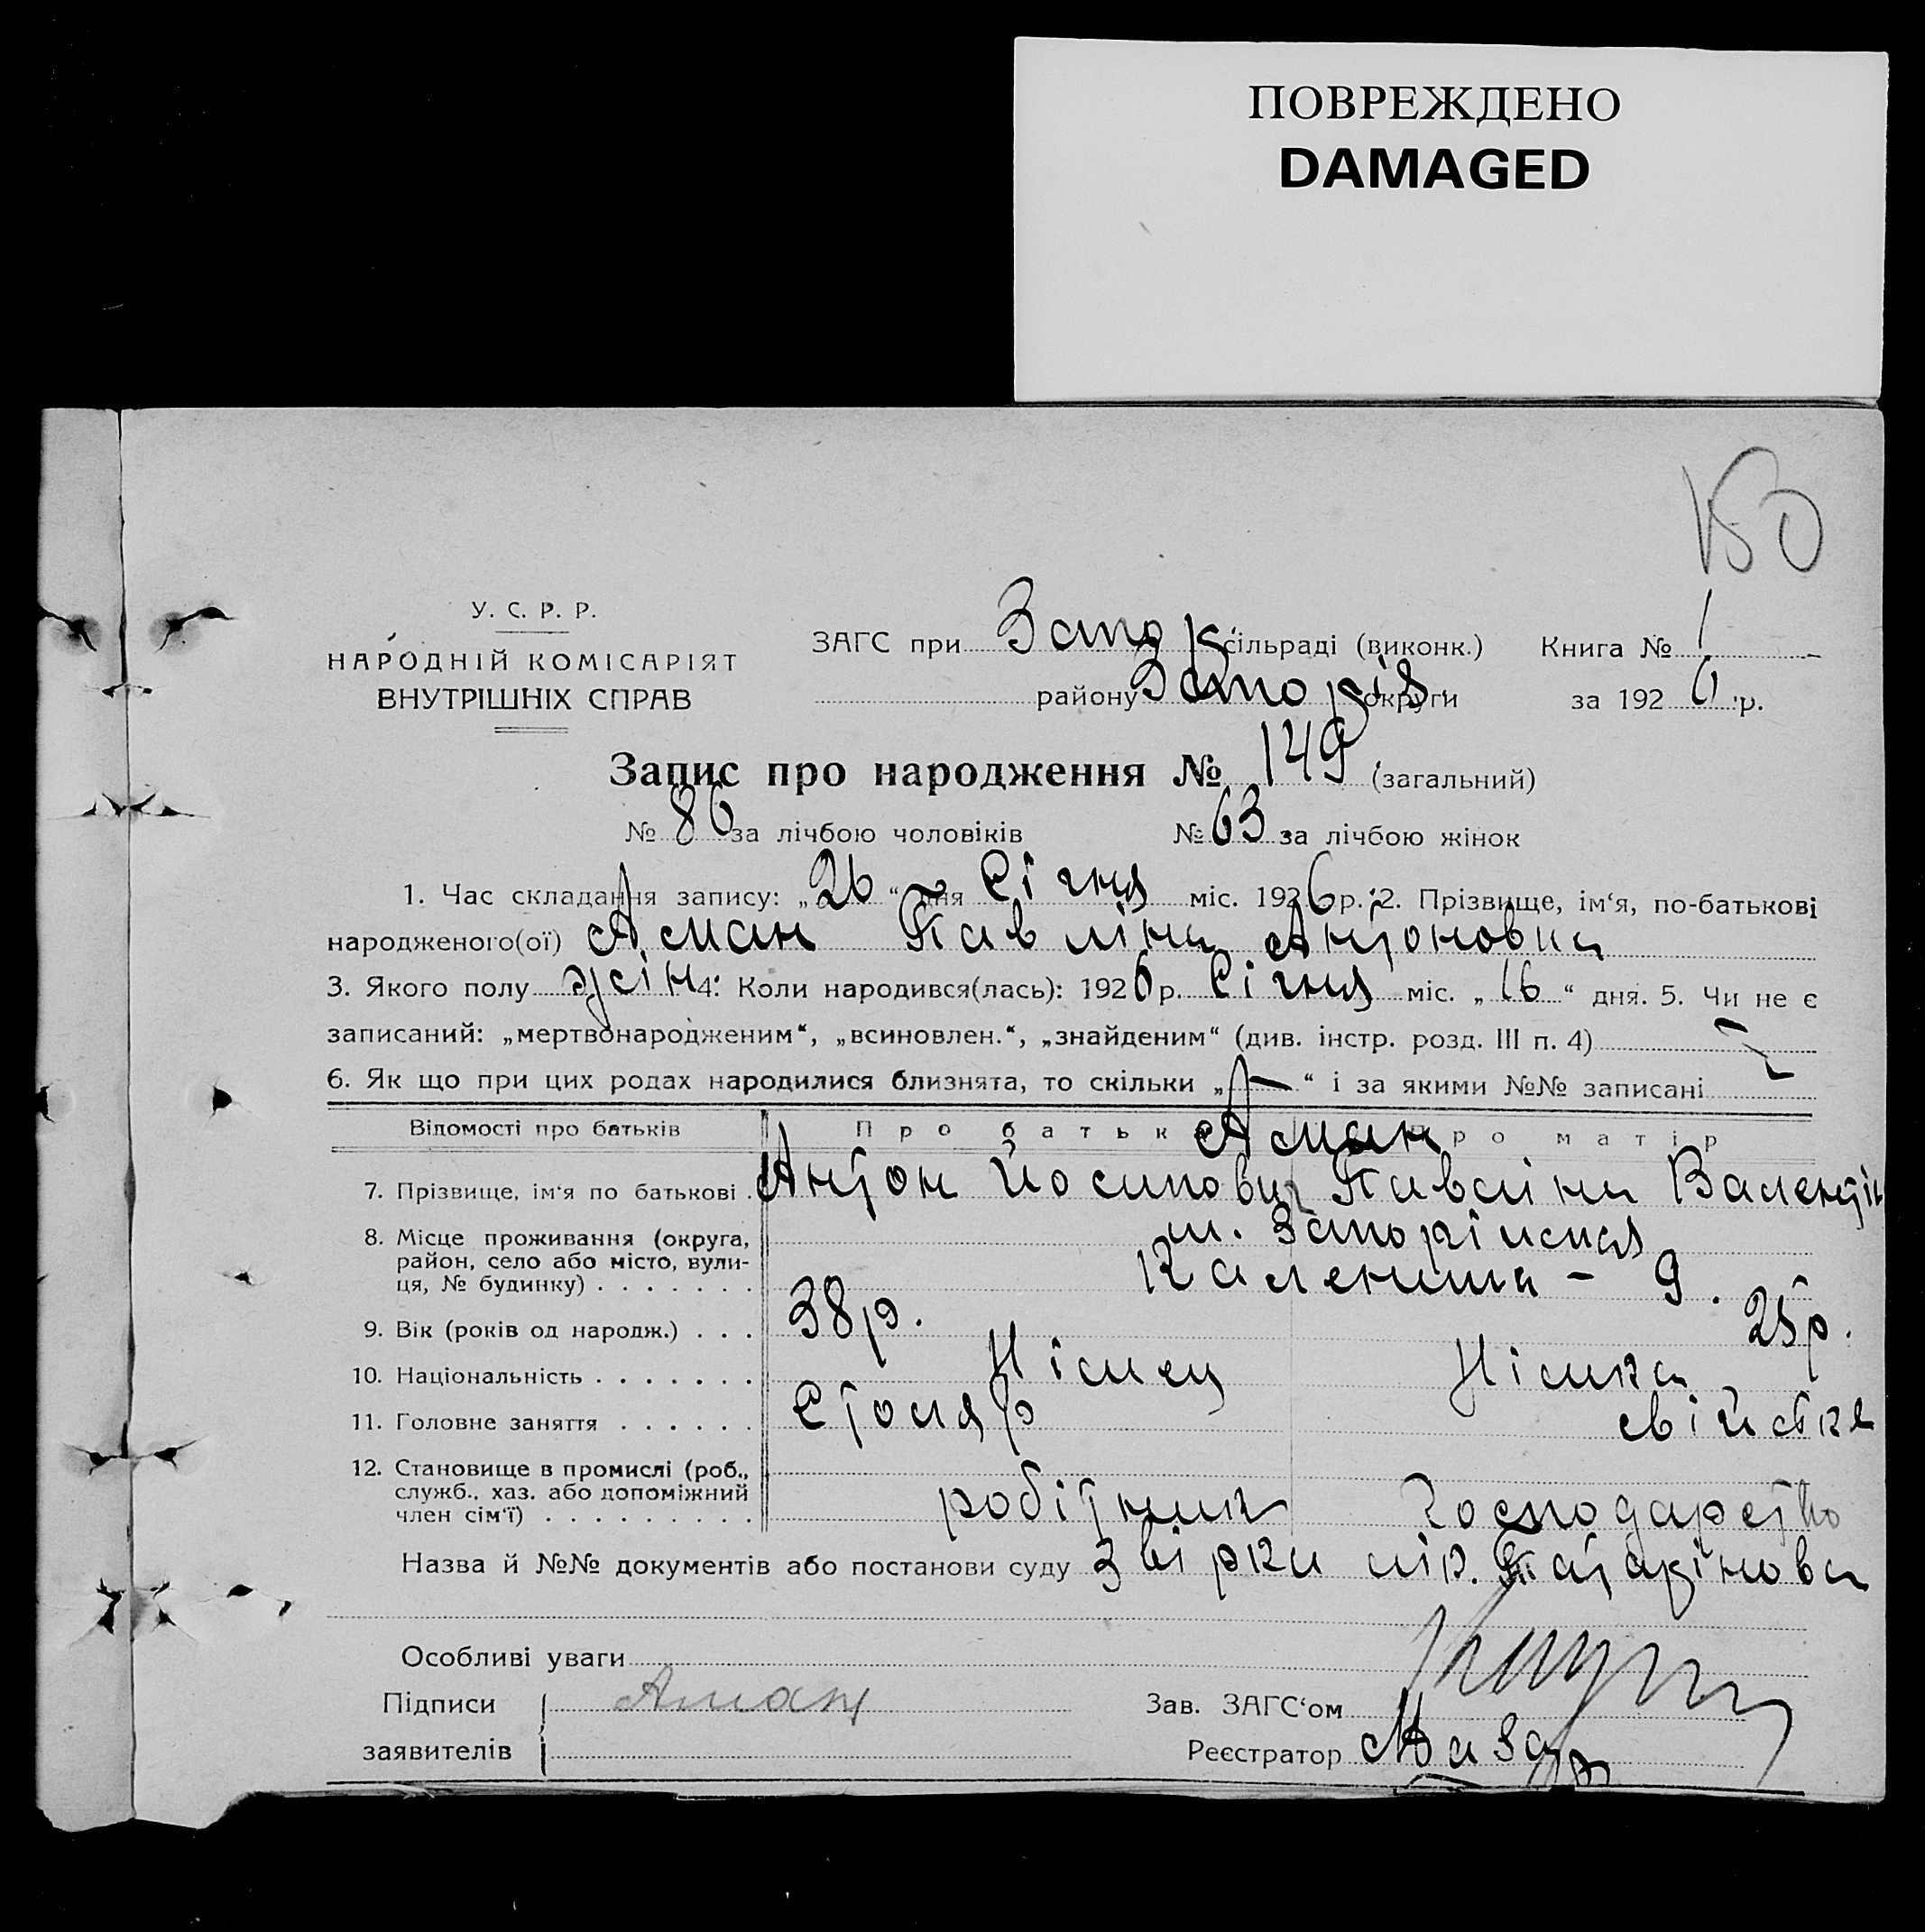 ПОВРЕЖДЕНО
DAMAGED
150
У. С. Р. Р.
НАРОДНІЙ КОМІСАРІЯТ
ВНУТРІШНІХ СПРАВ
ЗАГС при Запор сільраді (виконк.) Книга № 1
району Запоріз. округи за 1926 р.
Запис про народження № 149 (загальний)
№ 86 за лічбою чоловіків № 63 за лічбою жінок
1. Час складання запису: „26“ дня Січня міс. 1926 р. 2. Прізвище, ім'я, по-батькові
народженого(ої) Аман Павліна Антоновна
3. Якого полу жін 4. Коли народився(лась): 1926 р. Січня міс. „16“ дня. 5. Чи не є
записаний: „мертвонародженим“, „всиновлен.“, „знайденим“ (див. інстр. розд. III п. 4) —
6. Як що при цих родах народилися близнята, то скільки „—“ і за якими №№ записані —
Відомості про батьків Про батька Про матір
Аман
7. Прізвище, ім'я по батькові . Антон Йосипович Павлина Валентін
8. Місце проживання (округа,
район, село або місто, вули-
ця, № будинку) . . . . . . .
м.
9.
9. Вік (років од народж.) . . . 38 р. 25 р.
10. Національність . . . . . . . Німец Німка
11. Головне заняття . . . . . . Столяр свійске
12. Становище в промислі (роб.,
служб., хаз. або допоміжний
член сім'ї) . . . . . . . . . робітник господарство
Назва й №№ документів або постанови суду Звірки лік.
Особливі уваги
Підписи Аман Зав. ЗАГС'ом
заявителів Реєстратор